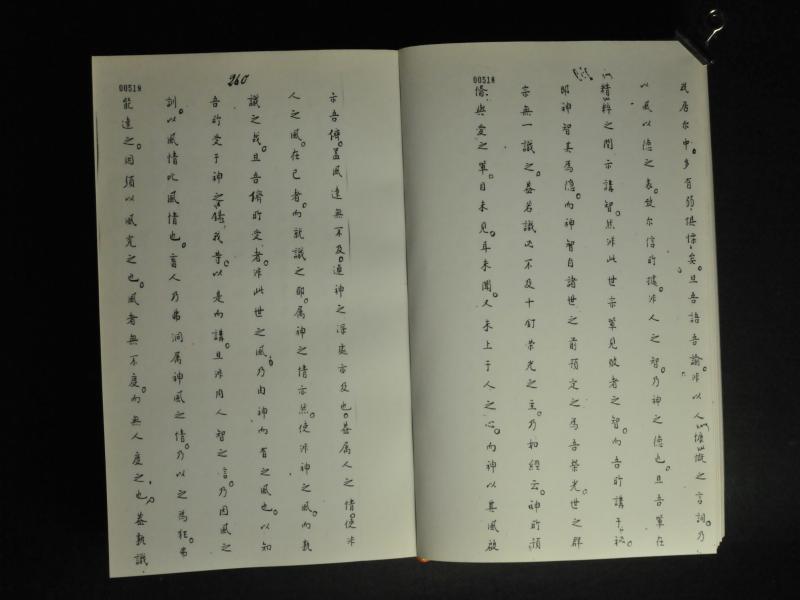 00518
我居尔中多有弱惧慄矣且吾語吾諭非以人慷慨之言詞乃
以風以德之表故尔信所據非人之智乃神之德也且吾輩在
精粹之間示講智然非此世宗輩見敗者之智向吾所講于秘
即神智其為隐向神智自諸世之前預定之為吾榮光世之群
宗無一識之蓋若識必不及十釘榮光之主乃和經云神所預
俻與愛之輩目未見耳未聞又未上于人之心向神以其風啟
00518
260
示吾儕盖風達無不及連神之深處亦及也蓋属人之情使非
人之風在己者向就識之耶属神之情亦然使非神之風向孰
識之哉且吾儕所受者非此世之風乃由神向首之風也以知
吾所受于神之儀我等以是向講且非用人智之言乃因風之
訓以風情比風情也盲人乃弗洞属神風之情乃以之為狂弗
能達之因須以風光之也風者無不度向無人度之也蓋孰識